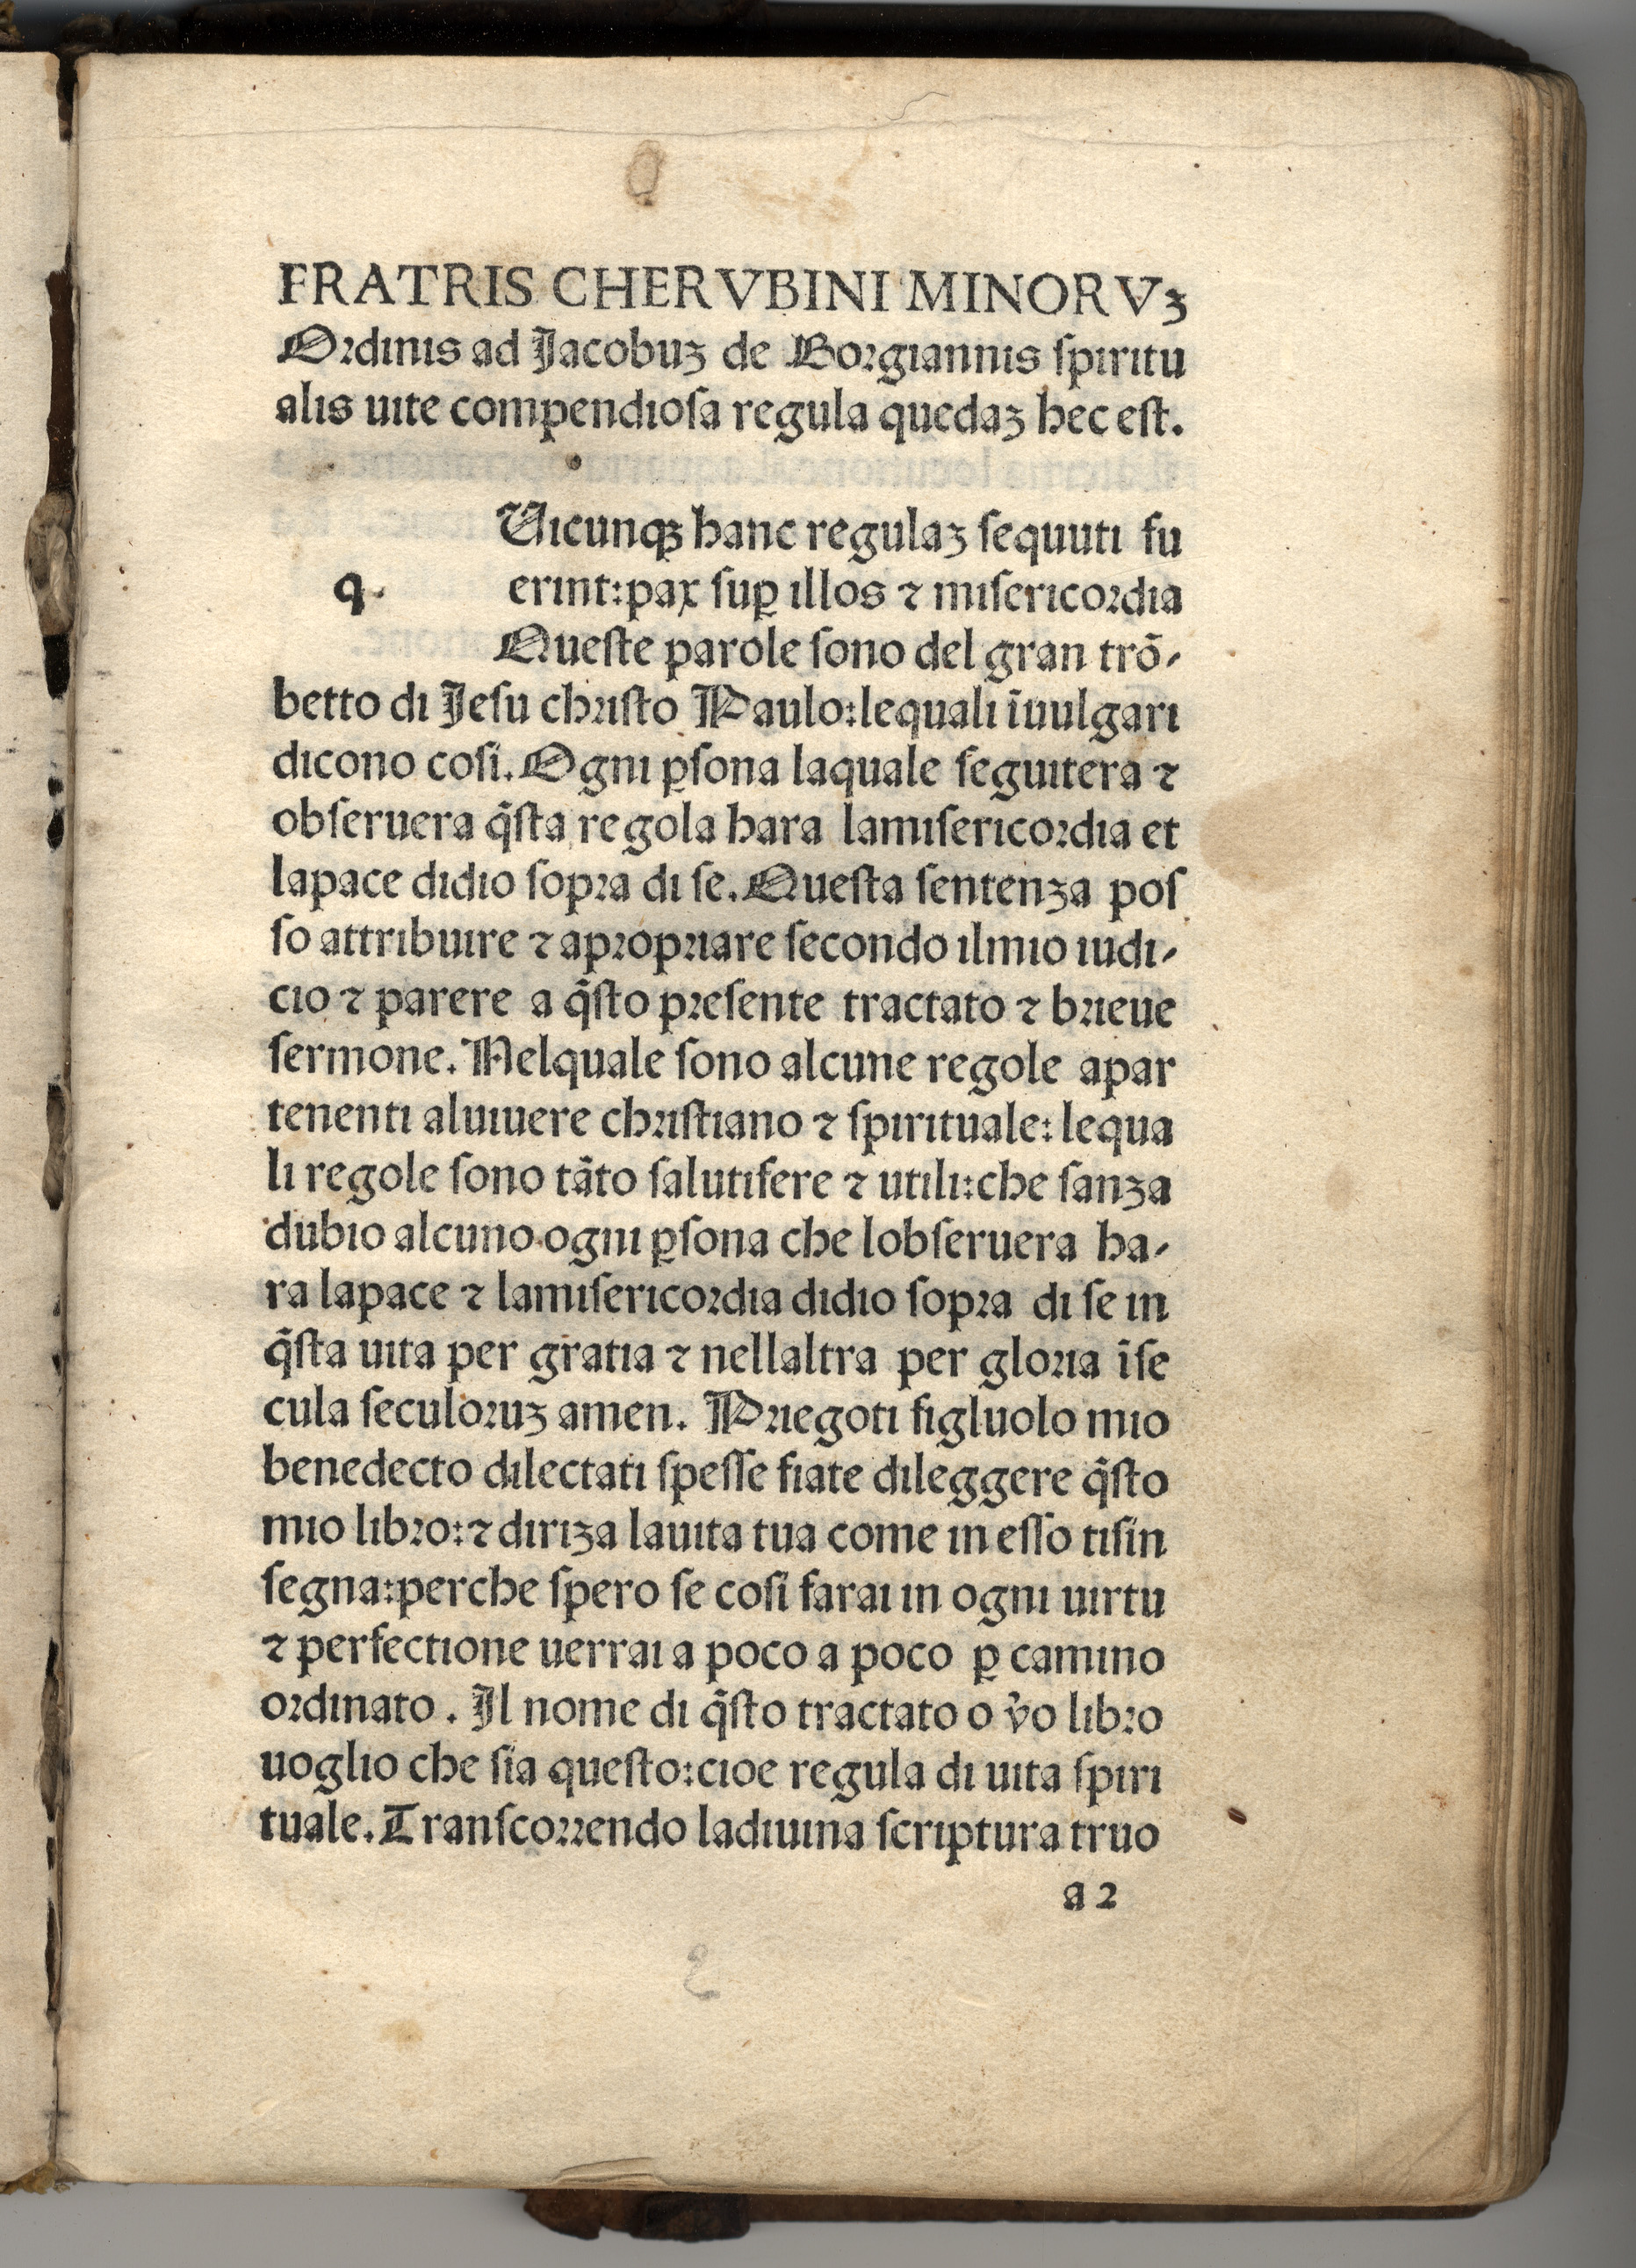 FRATRIS CHERVBINI MINORVꝫ
Ordinis ad Jacobuꝫ de Borgiannis ſpiritu
alis uite compendioſa regula quedaꝫ hec eſt.
Uicunqꝫ hanc regulaꝫ ſequuti fu
q. erint:pax ſuꝑ illos ⁊ miſericordia
Queſte parole ſono del gran trõ-
betto di Jeſu chriſto Paulo:lequali ĩuulgari
dicono coſi.Ogni ꝑſona laquale ſeguitera ⁊
obſeruera q̃ſta regola hara lamiſericordia et
lapace didio ſopra di ſe.Queſta ſentenza poſ
ſo attribuire ⁊ apropriare ſecondo ilmio iudi-
cio ⁊ parere a q̃ſto preſente tractato ⁊ brieue
ſermone. Nelquale ſono alcune regole apar
tenenti aluiuere chriſtiano ⁊ ſpirituale: lequa
li regole ſono tãto ſalutifere ⁊ utili:che ſanza
dubio alcuno ogni ꝑſona che lobſeruera ha-
ra lapace ⁊ lamiſericordia didio ſopra di ſe in
q̃ſta uita per gratia ⁊ nellaltra per gloria ĩſe
cula ſeculoruꝫ amen. Priegoti figluolo mio
benedecto dilectati ſpeſſe fiate dileggere q̃ſto
mio libro:⁊ diriza lauita tua come in eſſo tiſin
ſegna:perche ſpero ſe coſi farai in ogni uirtu
⁊ perfectione uerrai a poco a poco ꝑ camino
ordinato. Il nome di q̃ſto tractato o v̉o libro
uoglio che ſia queſto:cioe regula di uita ſpiri
tuale.Tranſcorrendo ladiuina ſcriptura truo
a 2